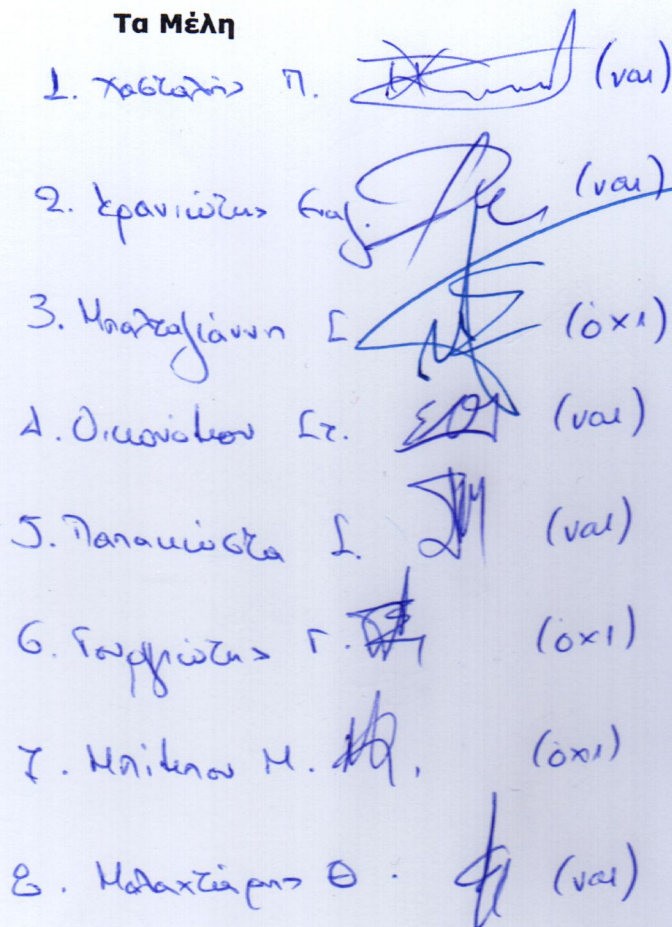 Τα Μέλη
1. Χασταλής Π. (ναι)
2. Κρανιώτης Ευαγ. (ναι)
3. Μπαλταγιάννη Σ. (όχι)
4. Οικονόμου Στ. (ναι)
5. Παπακώστα Σ. (ναι)
6. Γ. (όχι)
7. Μπίμπου Μ. (όχι)
8. Μαλαχτάρης Θ. (ναι)